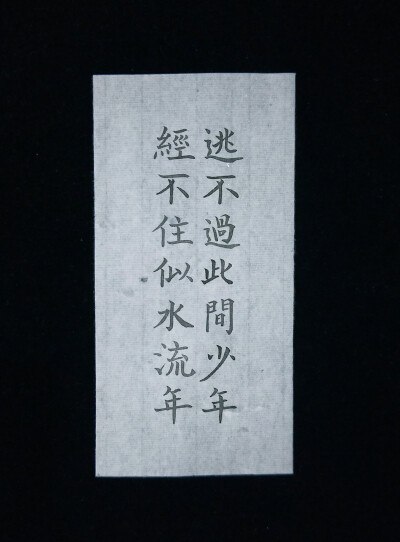 逃不過此間少年
經不住似水流年